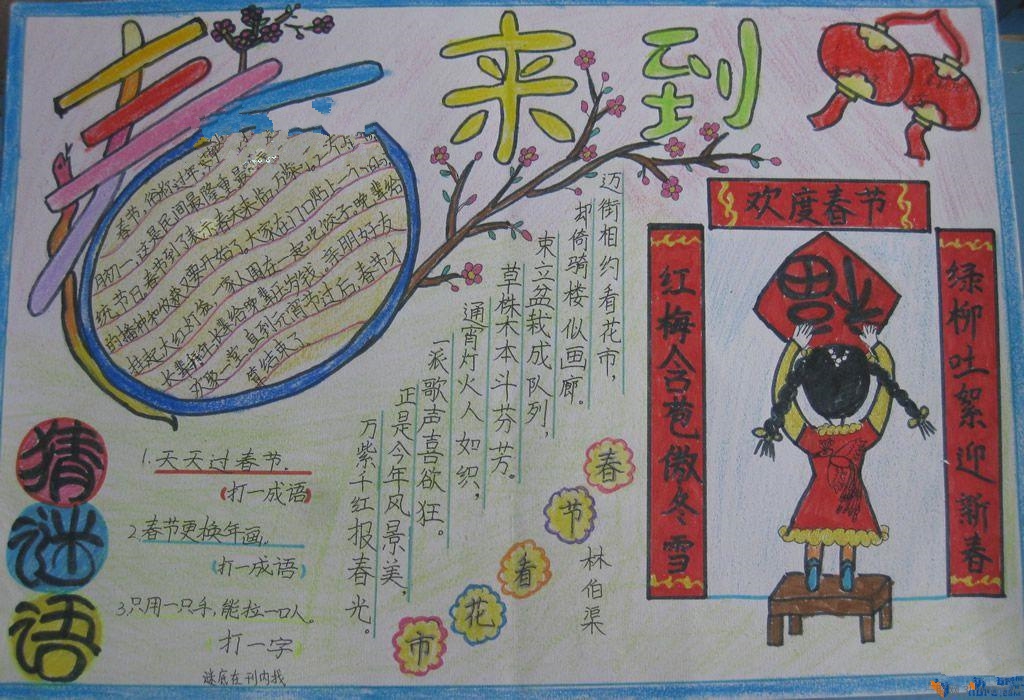 春来到
春节,俗称过年,
月初一,这是民间最隆重最
统节日。春节到了表示春天来临,万象
的播种和收获又要开始了。大家在门口贴上一个
挂起大红灯笼,一家人围在一起吃饺子。晚辈给
长辈拜年,长辈给晚辈压岁钱。亲朋好友
欢聚一堂。直到元宵节过后,春节才
算结束了
春节看花市
林伯渠
迈街相约看花市,
却倚骑楼似画廊。
束立盆栽成队列,
草株木本斗芬芳。
通宵灯火人如织,
一派歌声喜欲狂。
正是今年风景美,
万紫千红报春光。
欢度春节
红梅含苞傲冬雪
绿柳吐絮迎新春
福
猜谜语
1.天天过春节.
(打一成语)
2.春节更换年画。
(打一成语)
3.只用一只手,能拉一口人。
打一字
谜底在刊内找